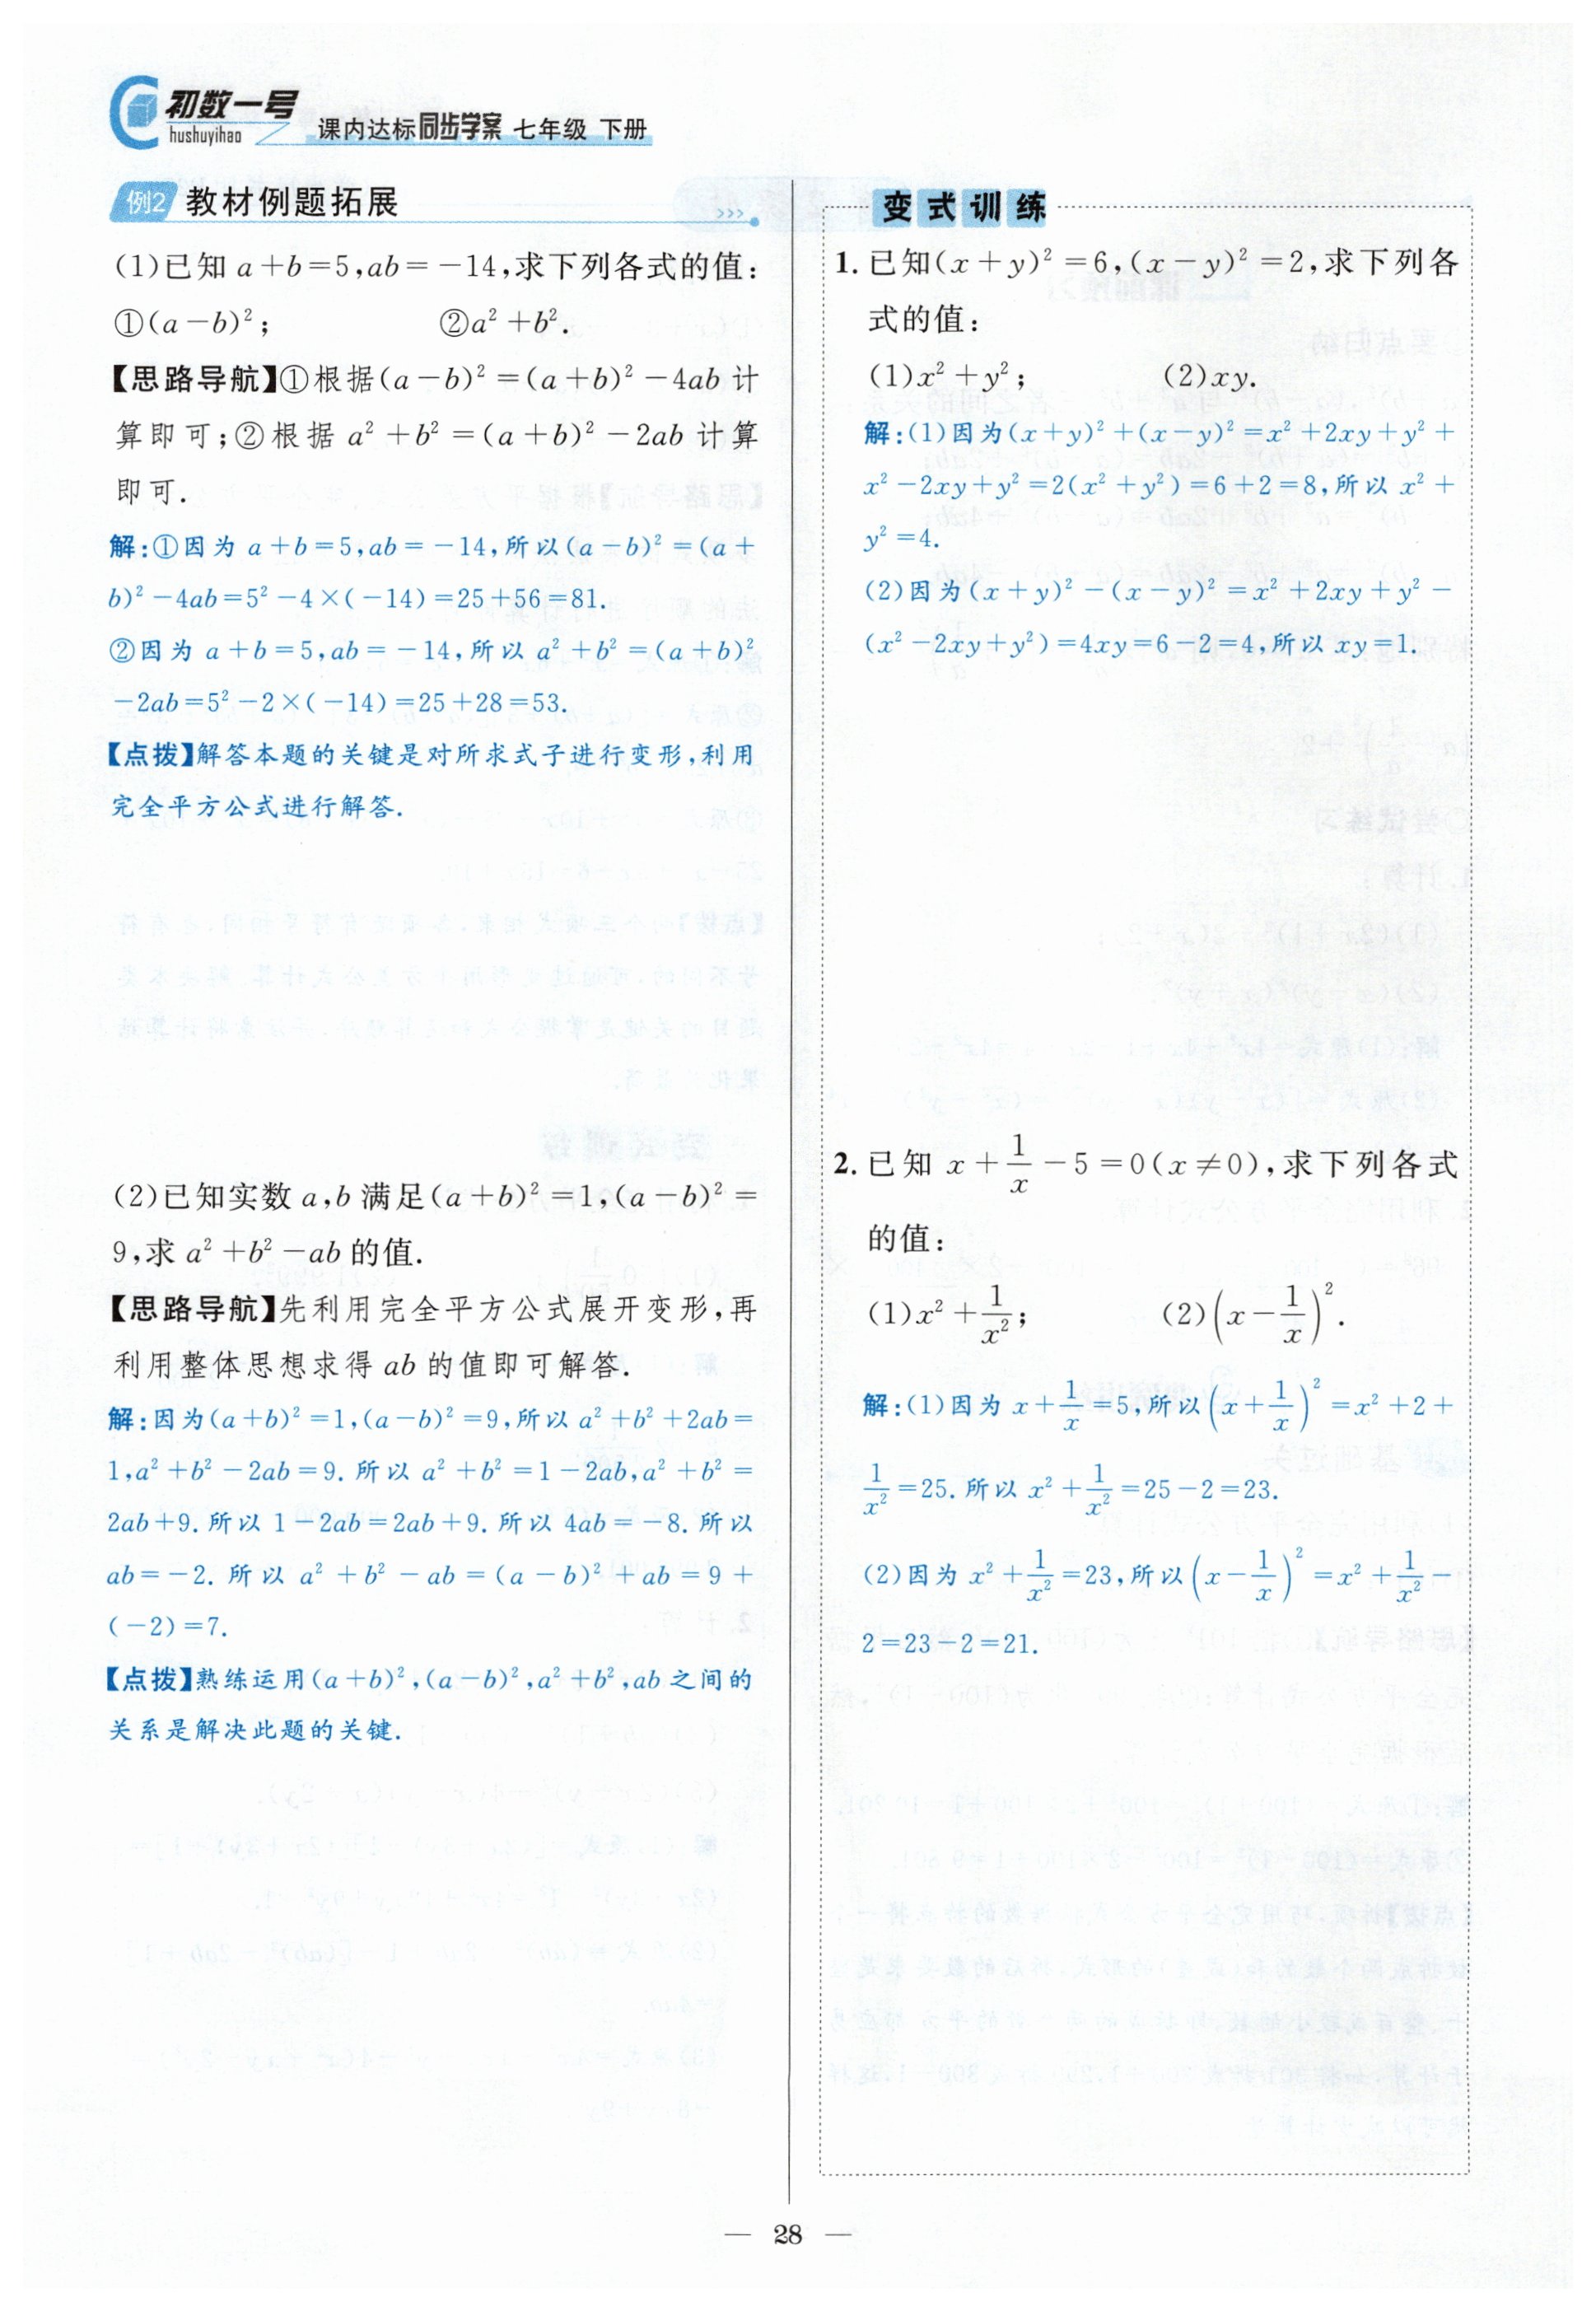 初数一号
hushuyihao
课内达标同步学案 七年级 下册
例2 教材例题拓展
(1)已知 a+b=5,ab=-14,求下列各式的值:
①(a-b)²; ②a²+b².
【思路导航】①根据(a-b)²=(a+b)²-4ab 计
算即可;②根据 a²+b²=(a+b)²-2ab 计算
即可.
解:①因为 a+b=5,ab=-14,所以(a-b)²=(a+
b)²-4ab=5²-4×(-14)=25+56=81.
②因为 a+b=5,ab=-14,所以 a²+b²=(a+b)²
-2ab=5²-2×(-14)=25+28=53.
【点拨】解答本题的关键是对所求式子进行变形,利用
完全平方公式进行解答.
(2)已知实数 a,b 满足(a+b)²=1,(a-b)²=
9,求 a²+b²-ab 的值.
【思路导航】先利用完全平方公式展开变形,再
利用整体思想求得 ab 的值即可解答.
解:因为(a+b)²=1,(a-b)²=9,所以 a²+b²+2ab=
1,a²+b²-2ab=9.所以 a²+b²=1-2ab,a²+b²=
2ab+9.所以 1-2ab=2ab+9.所以 4ab=-8.所以
ab=-2.所以 a²+b²-ab=(a-b)²+ab=9+
(-2)=7.
【点拨】熟练运用(a+b)²,(a-b)²,a²+b²,ab 之间的
关系是解决此题的关键.
变式训练
1.已知(x+y)²=6,(x-y)²=2,求下列各
式的值:
(1)x²+y²; (2)xy.
解:(1)因为(x+y)²+(x-y)²=x²+2xy+y²+
x²-2xy+y²=2(x²+y²)=6+2=8,所以 x²+
y²=4.
(2)因为(x+y)²-(x-y)²=x²+2xy+y²-
(x²-2xy+y²)=4xy=6-2=4,所以 xy=1.
2.已知 x+1/x-5=0(x≠0),求下列各式
的值:
(1)x²+1/x²; (2)(x-1/x)².
解:(1)因为 x+1/x=5,所以(x+1/x)²=x²+2+
1/x²=25.所以 x²+1/x²=25-2=23.
(2)因为 x²+1/x²=23,所以(x-1/x)²=x²+1/x²-
2=23-2=21.
— 28 —